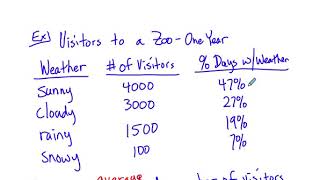 Ex) Visitors to a Zoo - One Year
Weather # of Visitors % Days w/Weather
Sunny 4000 47%
Cloudy 3000 27%
rainy 1500 19%
Snowy 100 7%
average of visitors